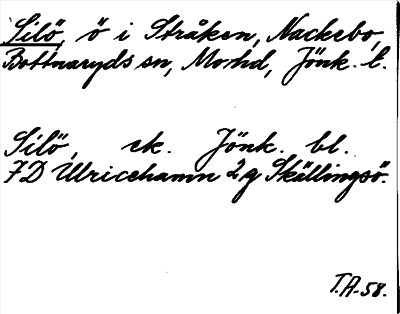 Silö, ö i Stråken, Nackebo,
Bottnaryds sn, Mo hd, Jönk. l.
Silö, ek. Jönk. bl.
7D Ulricehamn 2g Skällingsö.
T.A-58.